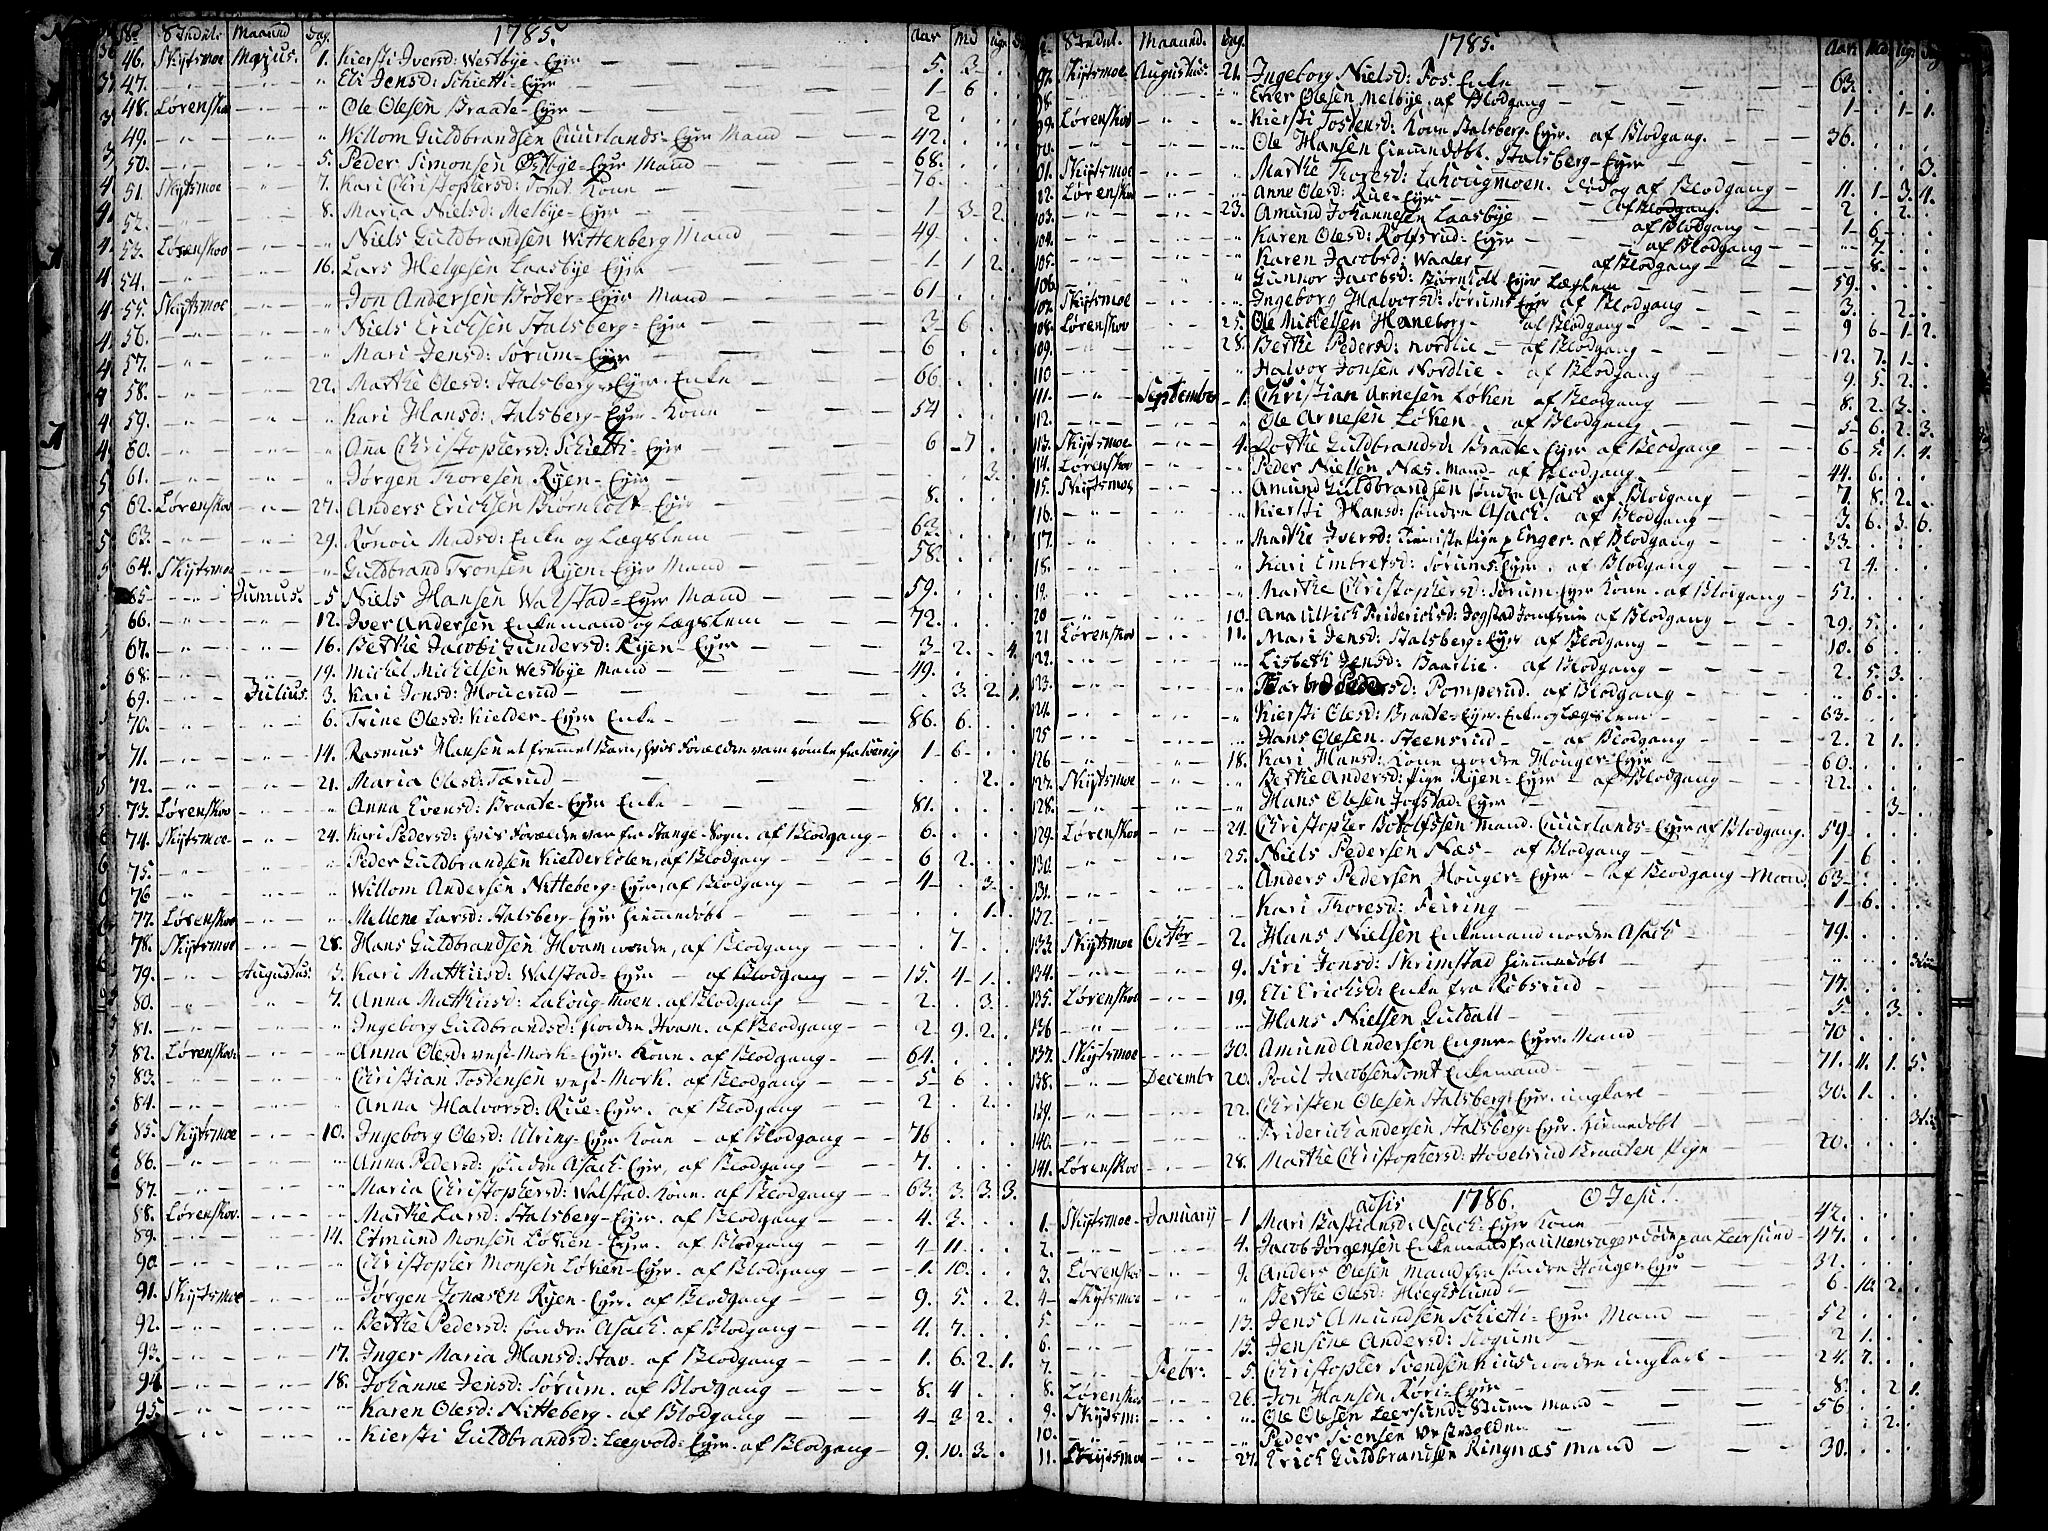 1785.
No Stedet. Maaned Dag. Aar Md Uge D
46. Skytsmoe Majus. 1. Kiersti Iversd: Westbye-Eyer 5. 3.
47. Eli Jensd: Schietti-Eyer 1 6
48. Lørenskov Ole Olesen Braate-Eyer 2
49. Willom Guldbrandsen Cuurlands-Eyer Mand 42.
50. 5. Peder Simonsen Østbye-Eyer Mand 68.
51. Skytsmoe 7. Kari Christophersd: Tomt Kone 76.
52. 8. Maria Nielsd: Melbye-Eyer 1 3 2.
53. Lørenskov Niels Guldbrandsen Wittenberg Mand 49.
54. 16. Lars Helgesen Laasbye-Eyer 1 1 2.
55. Skytsmoe Jon Andersen Brøter-Eyer Mand 61
56. Niels Erichsen Stalsberg-Eyer 3 6
57. Mari Jensd: Sørum-Eyer 6
58. 22. Marthe Olesd: Stalsberg-Eyer Enke 66
59. Kari Hansd: Stalsberg-Eyer Kone 54
60. Ana Christophersd: Schietti-Eyer 6 7
61. Jørgen Thoresen Ryen-Eyer 3.
62. Lørenskov 27. Anders Erichsen Biørnholt-Eyer 8.
63. 29. Rønou Madsd: Enke og Lægslem 62
64. Skytsmoe Guldbrand Tronsen Ryen-Eyer Mand 58.
65. Junius. 5 Niels Hansen Walstad-Eyer Mand 59.
66. 12. Iver Andersen Enkemand og Lægslem 72.
67. 16. Berthe Jacobi Gundersd: Ryen-Eyer 3 2. 4.
68. 19. Michel Michelsen Westbye Mand 49.
69. Julius. 3. Kari Jonsd: Houerud 3. 2. 1.
70. 6. Trine Olesd: Kielder-Eyer Enke 86. 6.
71. 14. Rasmus Hansen et fremmet Barn, hvis Forældre vare rømte fra 1 6
72. 21. Maria Olesd: Tærud 2.
73. Lørenskov Anna Evensd: Braate-Eyer Enke 81.
74. Skytsmoe 24. Kari Pedersd: hvis Forældre var fra Stange-Sogn. af Blodgang 6.
75. Peder Guldbrandsen Kielderholen, af Blodgang 6 2.
76 Willom Andersen Nitteberg-Eyer, af Blodgang 4 3.
77. Lørenskov Mellene Larsd: Stalsberg-Eyer hiemmedøbt 1.
78. Skytsmoe 28. Hans Guldbrandsen Hvam nordre, af Blodgang 7.
79. Augustus. 3. Kari Mathiisd: Walstad-Eyer af Blodgang 15. 4 1.
80. 7. Anna Mathiisd: Lahoug-moen. af Blodgang 2. 3.
81. Ingeborg Guldbrandsd: Nordre Hvam. af Blodgang 2. 9. 2.
82. Lørenskov. Anna Olesd: vest-Mork-Eyer Kone. af Blodgang 64.
83. Christian Tostensen vest-Mork. af Blodgang 5 6.
84. Anna Halvorsd: Rue-Eyer. af Blodgang 2. 2.
85. Skytsmoe 10. Ingeborg Olesd: Ulring-Eyer Kone af Blodgang 76
86. Anna Pedersd: søndre Asack-Eyer, af Blodgang 7.
87. Maria Christophersd: Walstad Kone. af Blodgang 63. 3. 3. 3.
88. Lørenskov. Marthe Larsd: Stalsberg-Eyer. af Blodgang 4. 3.
89. 14. Edmund Monsen Løken-Eyer. af Blodgang 4 11.
90. Christopher Monsen Løken-Eyer. af Blodgang 1. 10.
91. Skytsmoe Jørgen Jonasen Ryen-Eyer. af Blodgang 9. 5. 2.
92. Berthe Pedersd: søndre Asack. af Blodgang 4. 7.
93. 17. Inger Maria Hansd: Stav. af Blodgang 1. 6. 2. 1.
94. 18. Johanne Jensd: Sørum. af Blodgang 8. 4
95. Karen Olesd: Nitteberg. af Blodgang 4 3 2.
Kiersti Guldbrandsd: Leegvold-Eyer. af Blodgang 9. 10. 3.
1785.
Stedet. Maaned. Dag. Aar Md Uge Dag
97. Skytsmoe Augustus 21. Ingeborg Nielsd: Fos Enke 63.
98. Even Olesen Melbye. af Blodgang 1 1 1.
99. Lørenskov Kiersti Tostensd: Kone Stalsberg-Eyer. af Blodgang. 36.
Ole Hansen hiemmedøbt. Stalsberg-Eyer 3.
101. Skytsmoe Marthe Thoresd: Lahougmoen. af Blodgang 11. 1. 3. 4.
102. Lørenskov Anne Olesd: Rue-Eyer af Blodgang. 2. 2.
103. 23. Amund Johannesen Laasbye af Blodgang 1 6
104. Karen Olesd: Rolfsrud-Eyer af Blodgang 7.
105. Karen Jacobsd: Waaler af Blodgang 8.
106. Gunnor Jacobsd: Biørnholt Eyer Lægslem 59.
107. Skytsmoe Ingeborg Halvorsd: Sørums Eyer af Blodgang 3. 2.
108. Lørenskov 25. Ole Mickelsen Haneborg. af Blodgang 9 6 1 2.
109. 28. Berthe Pedersd: Nordlie af Blodgang 12. 7. 1.
110 Halvor Jonsen Nordlie. af Blodgang 9. 5 2.
111. September 1. Christian Arnesen Løken af Blodgang 8. 2. 3.
112. Ole Arnesen Løken. af Blodgang 5 6. 2. 3.
113. Skytsmoe 4. Dorthe Guldbrandsd: Braate-Eyer af Blodgang 6 5. 1. 4.
114. Lørenskov Peder Nielsen Næs. Mand. af Blodgang 44. 6.
115. Skytsmoe Amund Guldbrandsen søndre Asack af Blodgang 7. 8. 2.
116. Kiersti Hansd: søndre Asack. af Blodgang 3. 6. 3. 6.
117. Marthe Iversd: Enger. af Blodgang 33.
18. Kari Embretsd: Sørums Eyer. af Blodgang 2 4.
19. Marthe Christophersd: Sørum-Eyer Kone. af Blodgang 52.
20 10. Ana Ulrich Friderichsd: Jogstad Jomfrue af Blodgang 29. 5.
21 Lørenskov 11. Mari Jensd: Stalsberg-Eyer af Blodgang 10. 6
122. Lisbeth Jensd: Baarlie. af Blodgang 2. 5. 3.
123. Pedersd: Pomperud. af Blodgang 6.
124. Kiersti Olesd: Braate-Eyer Enke og Lægslem 63.
125 Hans Olesen. Steensrud af Blodgang 2. 2 1.
126 18. Kari Hansd: Kone nordre Houger-Eyer 60.
127. Skytsmoe Berthe Andersd: Pige Ryen-Eyer af Blodgang 22.
128. Hans Olesen Jogstad-Eyer 3
129. Lørenskov 24. Christopher Botolfssen Mand. Cuurlands-Eyer af Blodgang. 59
130. 25. Niels Pedersen Næs. af Blodgang 1 6
131. Anders Pedersen Houger-Eyer af Blodgang Mand. 63
132. Kari Thoresd: Feiring 1 6.
133. Skytsmoe Octbr 2. Hans Nielsen Enkemand nordre Asack 79.
134. 9. Siri Jonsd: Skrimstad hiemmedøbt
135. Lørenskov 19. Eli Erichsd: Enke fra Robsrud 77.
136 Hans Nielsen Guldall 5. 3.
137. Skytsmoe 30. Amund Andersen Enger-Eyer. Mand 70
138. Decembr 20. Poul Jacobsen Tomt Enkemand. 71. 11. 1. 5.
139. 22. Christen Olesen Stalsberg-Eyer ungkarl 30. 1.
140. Friderich Andersen Stalsberg-Eyer. hiemmedøbt
141. Lørenskov 28. Marthe Christophersd: Hovelsrud Braaten Pige 20.
adsis 1786. O Jesu!
1. Skytsmoe Januarij 1 Mari Bastiansd: Asack-Eyer Kone 42.
2. 4. Jacob Jørgensen Enkemand fra døde paa Leersund 47.
3. Lørenskov 9. Anders Olesen Mand fra søndre Houger-Eyer 32.
4 Skytsmoe Berthe Olesd: 6 10. 2.
5. 13. Jens Amundsen Schietti-Eyer Mand 52
6. 15. Jensine Andersd: Skogum 2 1.
7. Febr: 5. Christopher Svendsen Kius nordre ungkarl 24. 7.
8. Lørenskov 26. Jon Hansen Røri-Eyer 8. 2 1.
9. Skytsm: Ole Olesen Leersund: Stuen Mand 56
10. Peder Svensen Vestvolden 2.
11. Skytsmoe 27. Erich Guldbrandsen Ringnæs Mand 30.